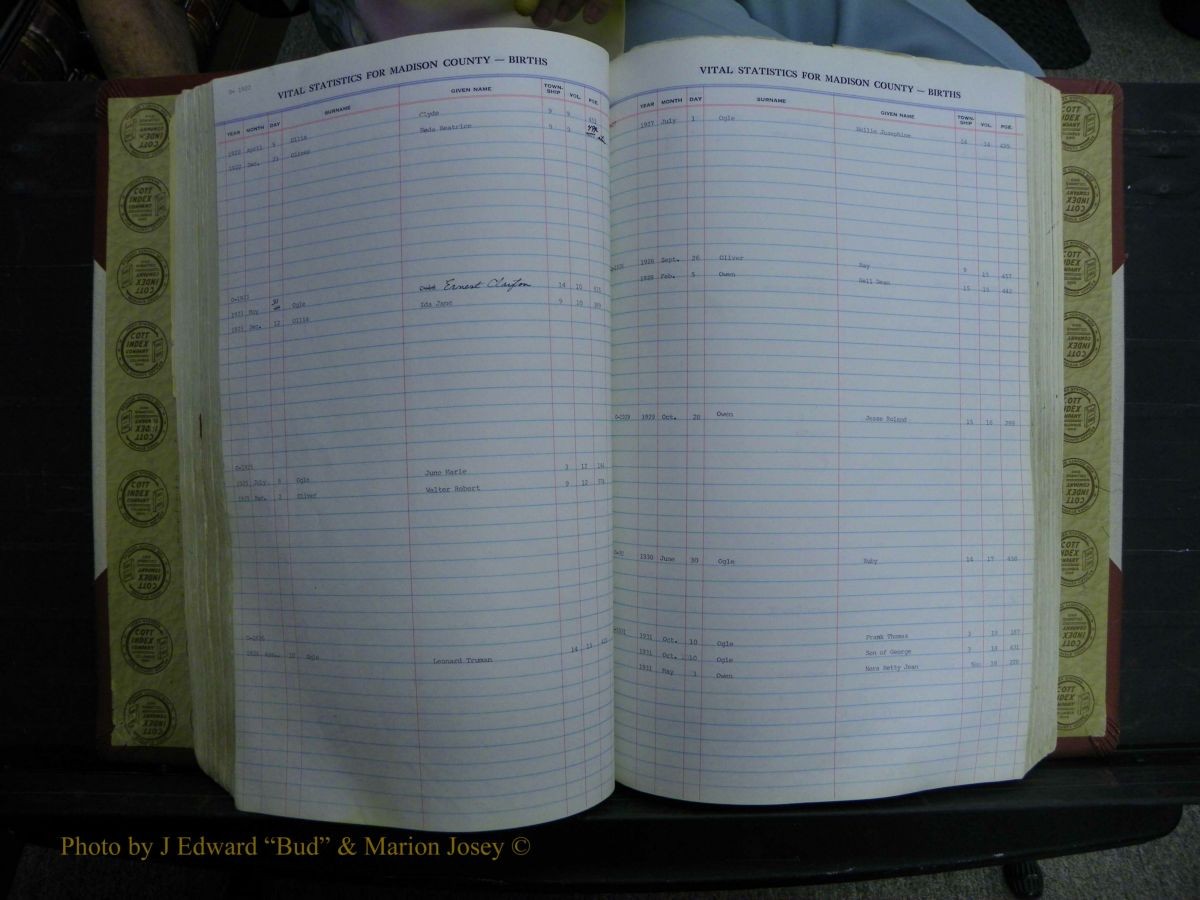 O- 1922
VITAL STATISTICS FOR MADISON COUNTY — BIRTHS
YEAR MONTH DAY SURNAME GIVEN NAME TOWN-SHIP VOL. PGE.
1922 April 5 Ollis Clyde 9 9
1922 Dec. 21 Oliver Neda Beatrice 9 9
O-1923
1923 May Ogle Ernest Clayton 14 10
1923 Dec. 12 Ollis Ida Jane 9 10
O-1925
1925 July 8 Ogle June Marie 3 12
1925 Mar. 2 Oliver Walter Robert 9 12
Ogle Leonard Truman 14 13
VITAL STATISTICS FOR MADISON COUNTY — BIRTHS
YEAR MONTH DAY SURNAME GIVEN NAME TOWN-SHIP VOL. PGE.
1927 July 1 Ogle Nellie Josephine 14 14
1928 Sept. 26 Oliver Ray 9 15 457
1928 Feb. 5 Owen Nell Dean 15 15 442
O-1929 1929 Oct. 28 Owen Jesse Roland 15 16
1930 June 30 Ogle Ruby 14 17 456
1931 Oct. 10 Ogle Frank Thomas 3 18 187
1931 Oct. 10 Ogle Son of George 3 18 431
1931 May 1 Owen Nora Betty Jean 18 228
COTT INDEX COMPANY
Photo by J Edward “Bud” & Marion Josey ©